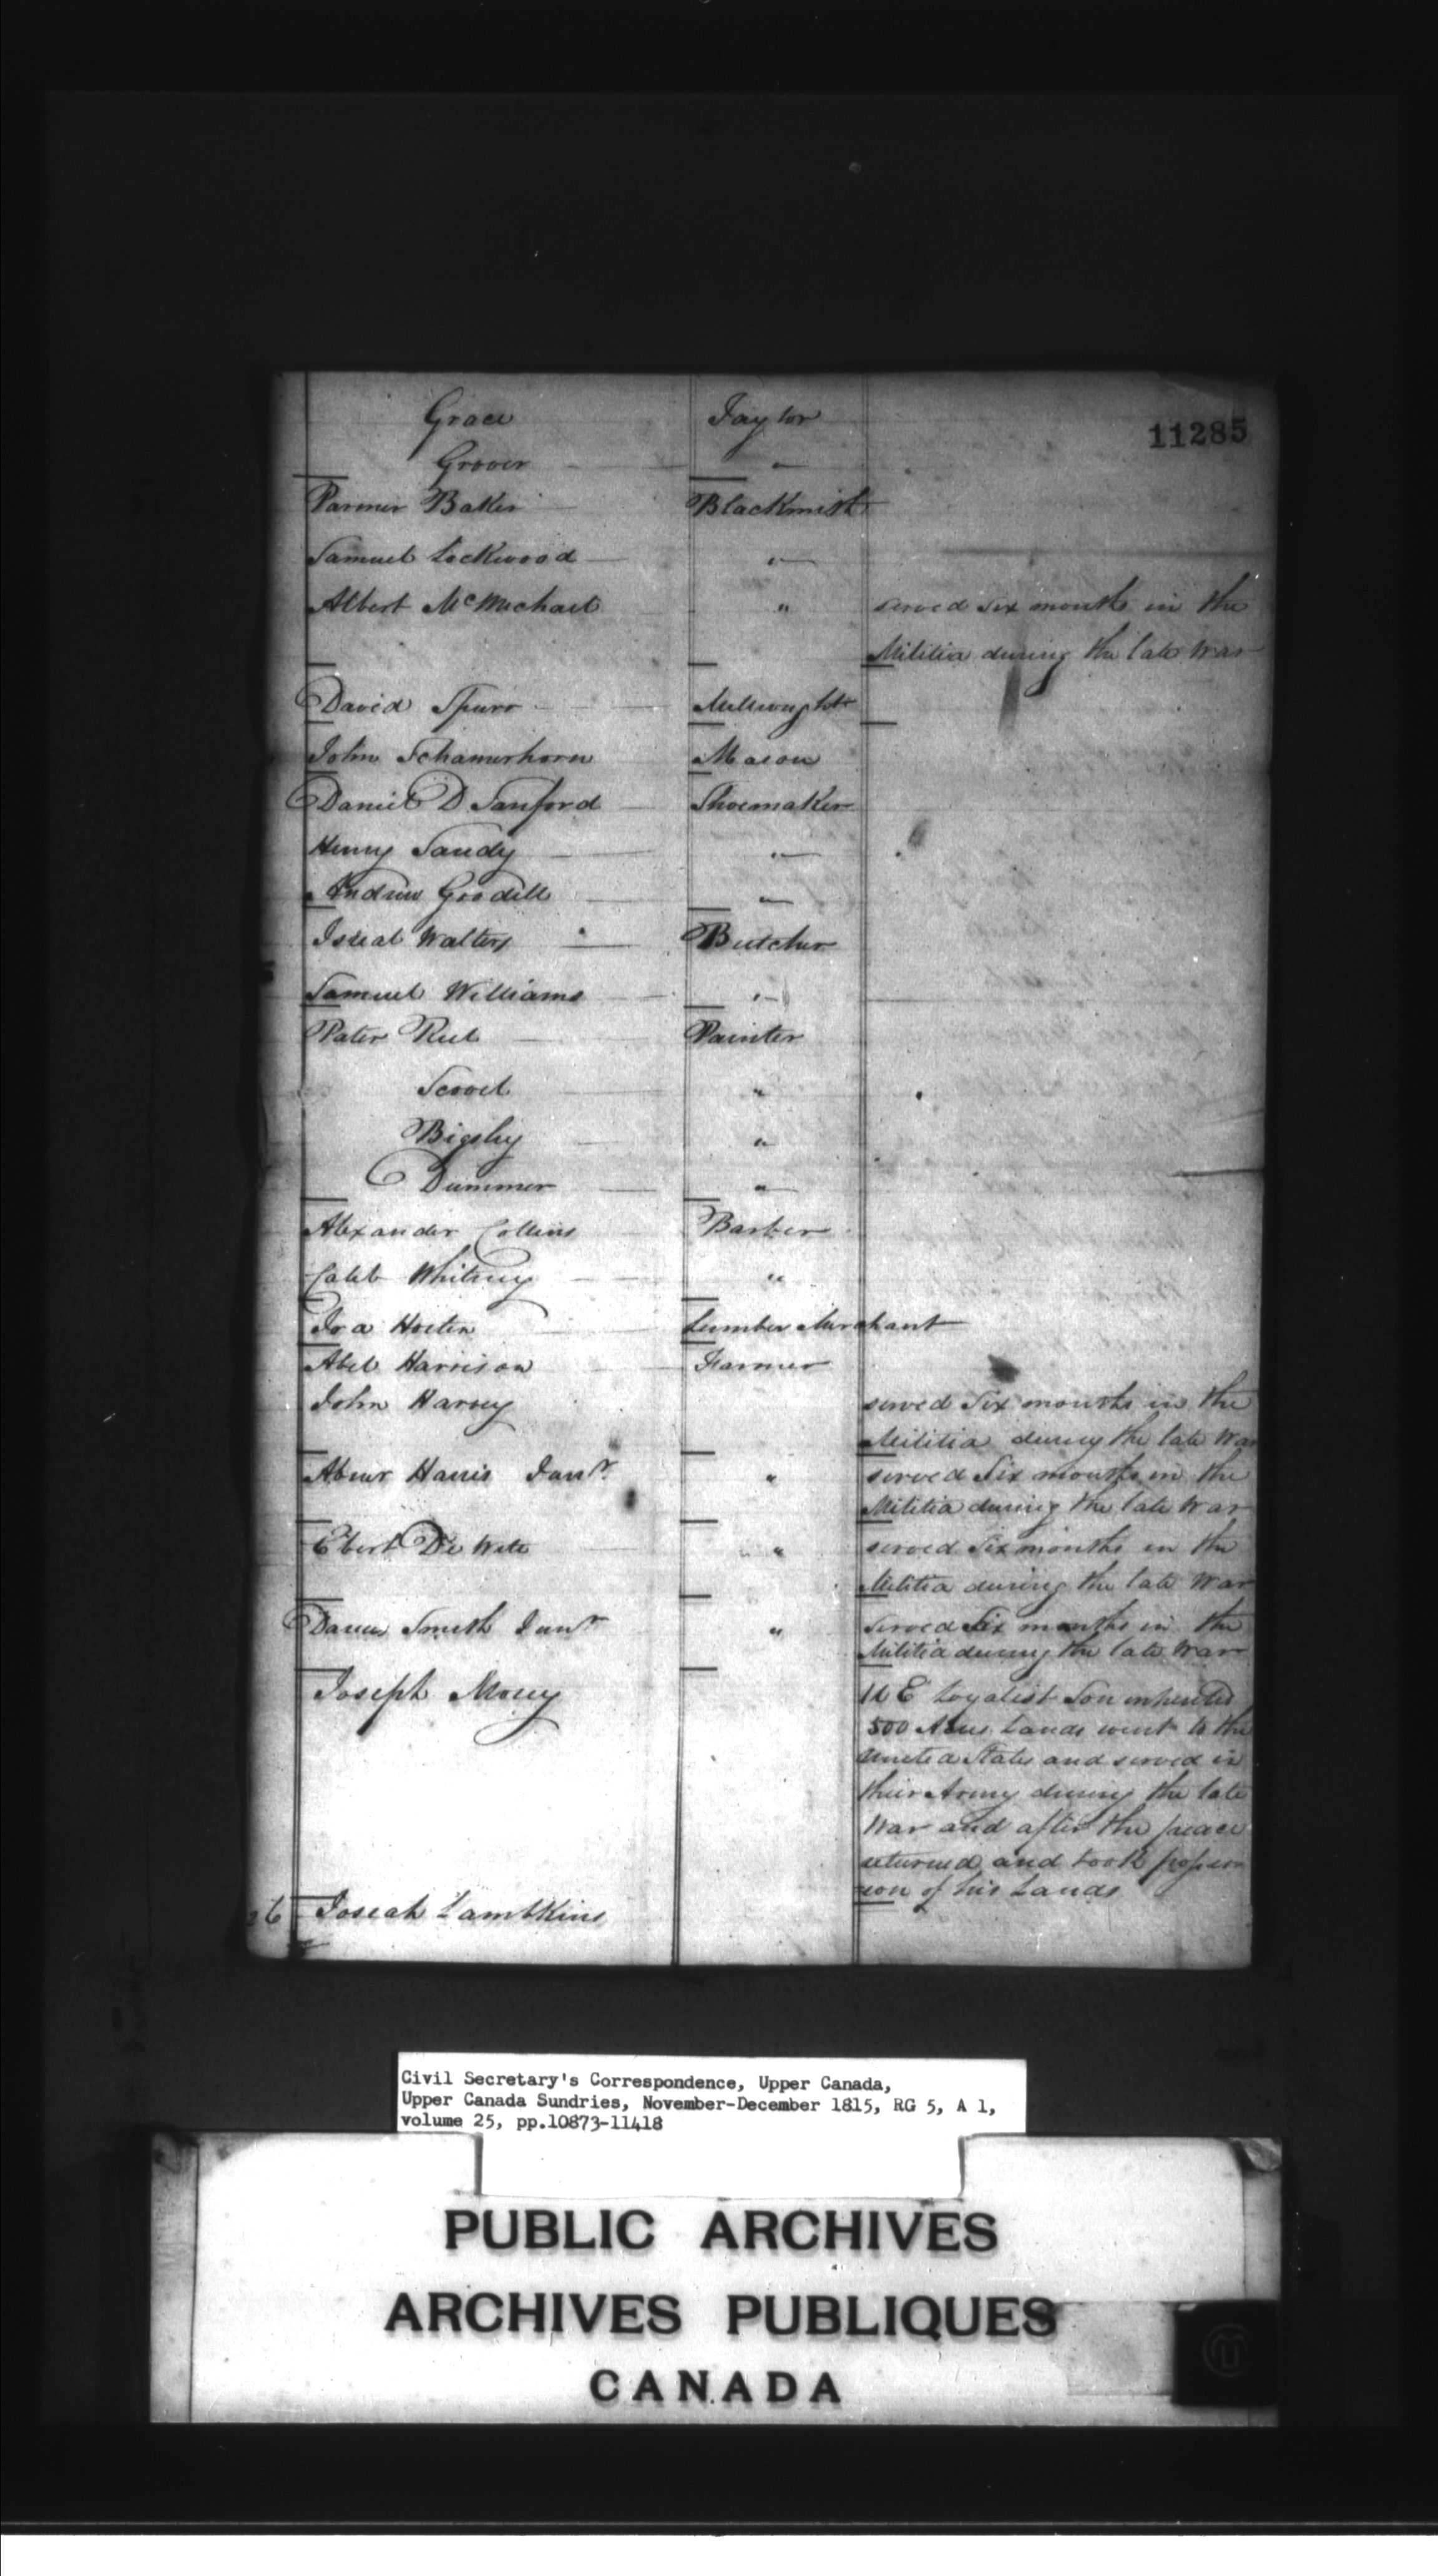 11285
Grace Taylor
Grover "
Parmer Baker Blacksmith
Samuel Lockwood "
Albert McMichael " served six months in the
Militia during the late War
David Spurr Millwright
John Schamerhorn Mason
Daniel D Sanford Shoemaker
Henry Sandy "
Andrew Goodell "
Isreal Walters Butcher
Samuel Williams "
Peter Rul Painter
Scovel "
Bigsby "
Dummer "
Alexander Collins Barber
Caleb Whitney "
Ira Lumber Merchant
Abel Harrison Farmer
John Harvey served Six months in the
Militia during the late War
Abner Harris Junr. " served Six months in the
Militia during the late War
Ebert De Witt " served Six months in the
Militia during the late War
Smith Junr " served Six months in the
Militia during the late War
Joseph Morey U E Loyalist Son inherited
500 Acres Lands went to the
United States and served in
their Army during the late
War and after the peace
returned and took posses
sion of his Lands
26 Joseah Lambkins
Civil Secretary's Correspondence, Upper Canada,
Upper Canada Sundries, November-December 1815, RG 5, A 1,
volume 25, pp.10873-11418
PUBLIC ARCHIVES
ARCHIVES PUBLIQUES
CANADA